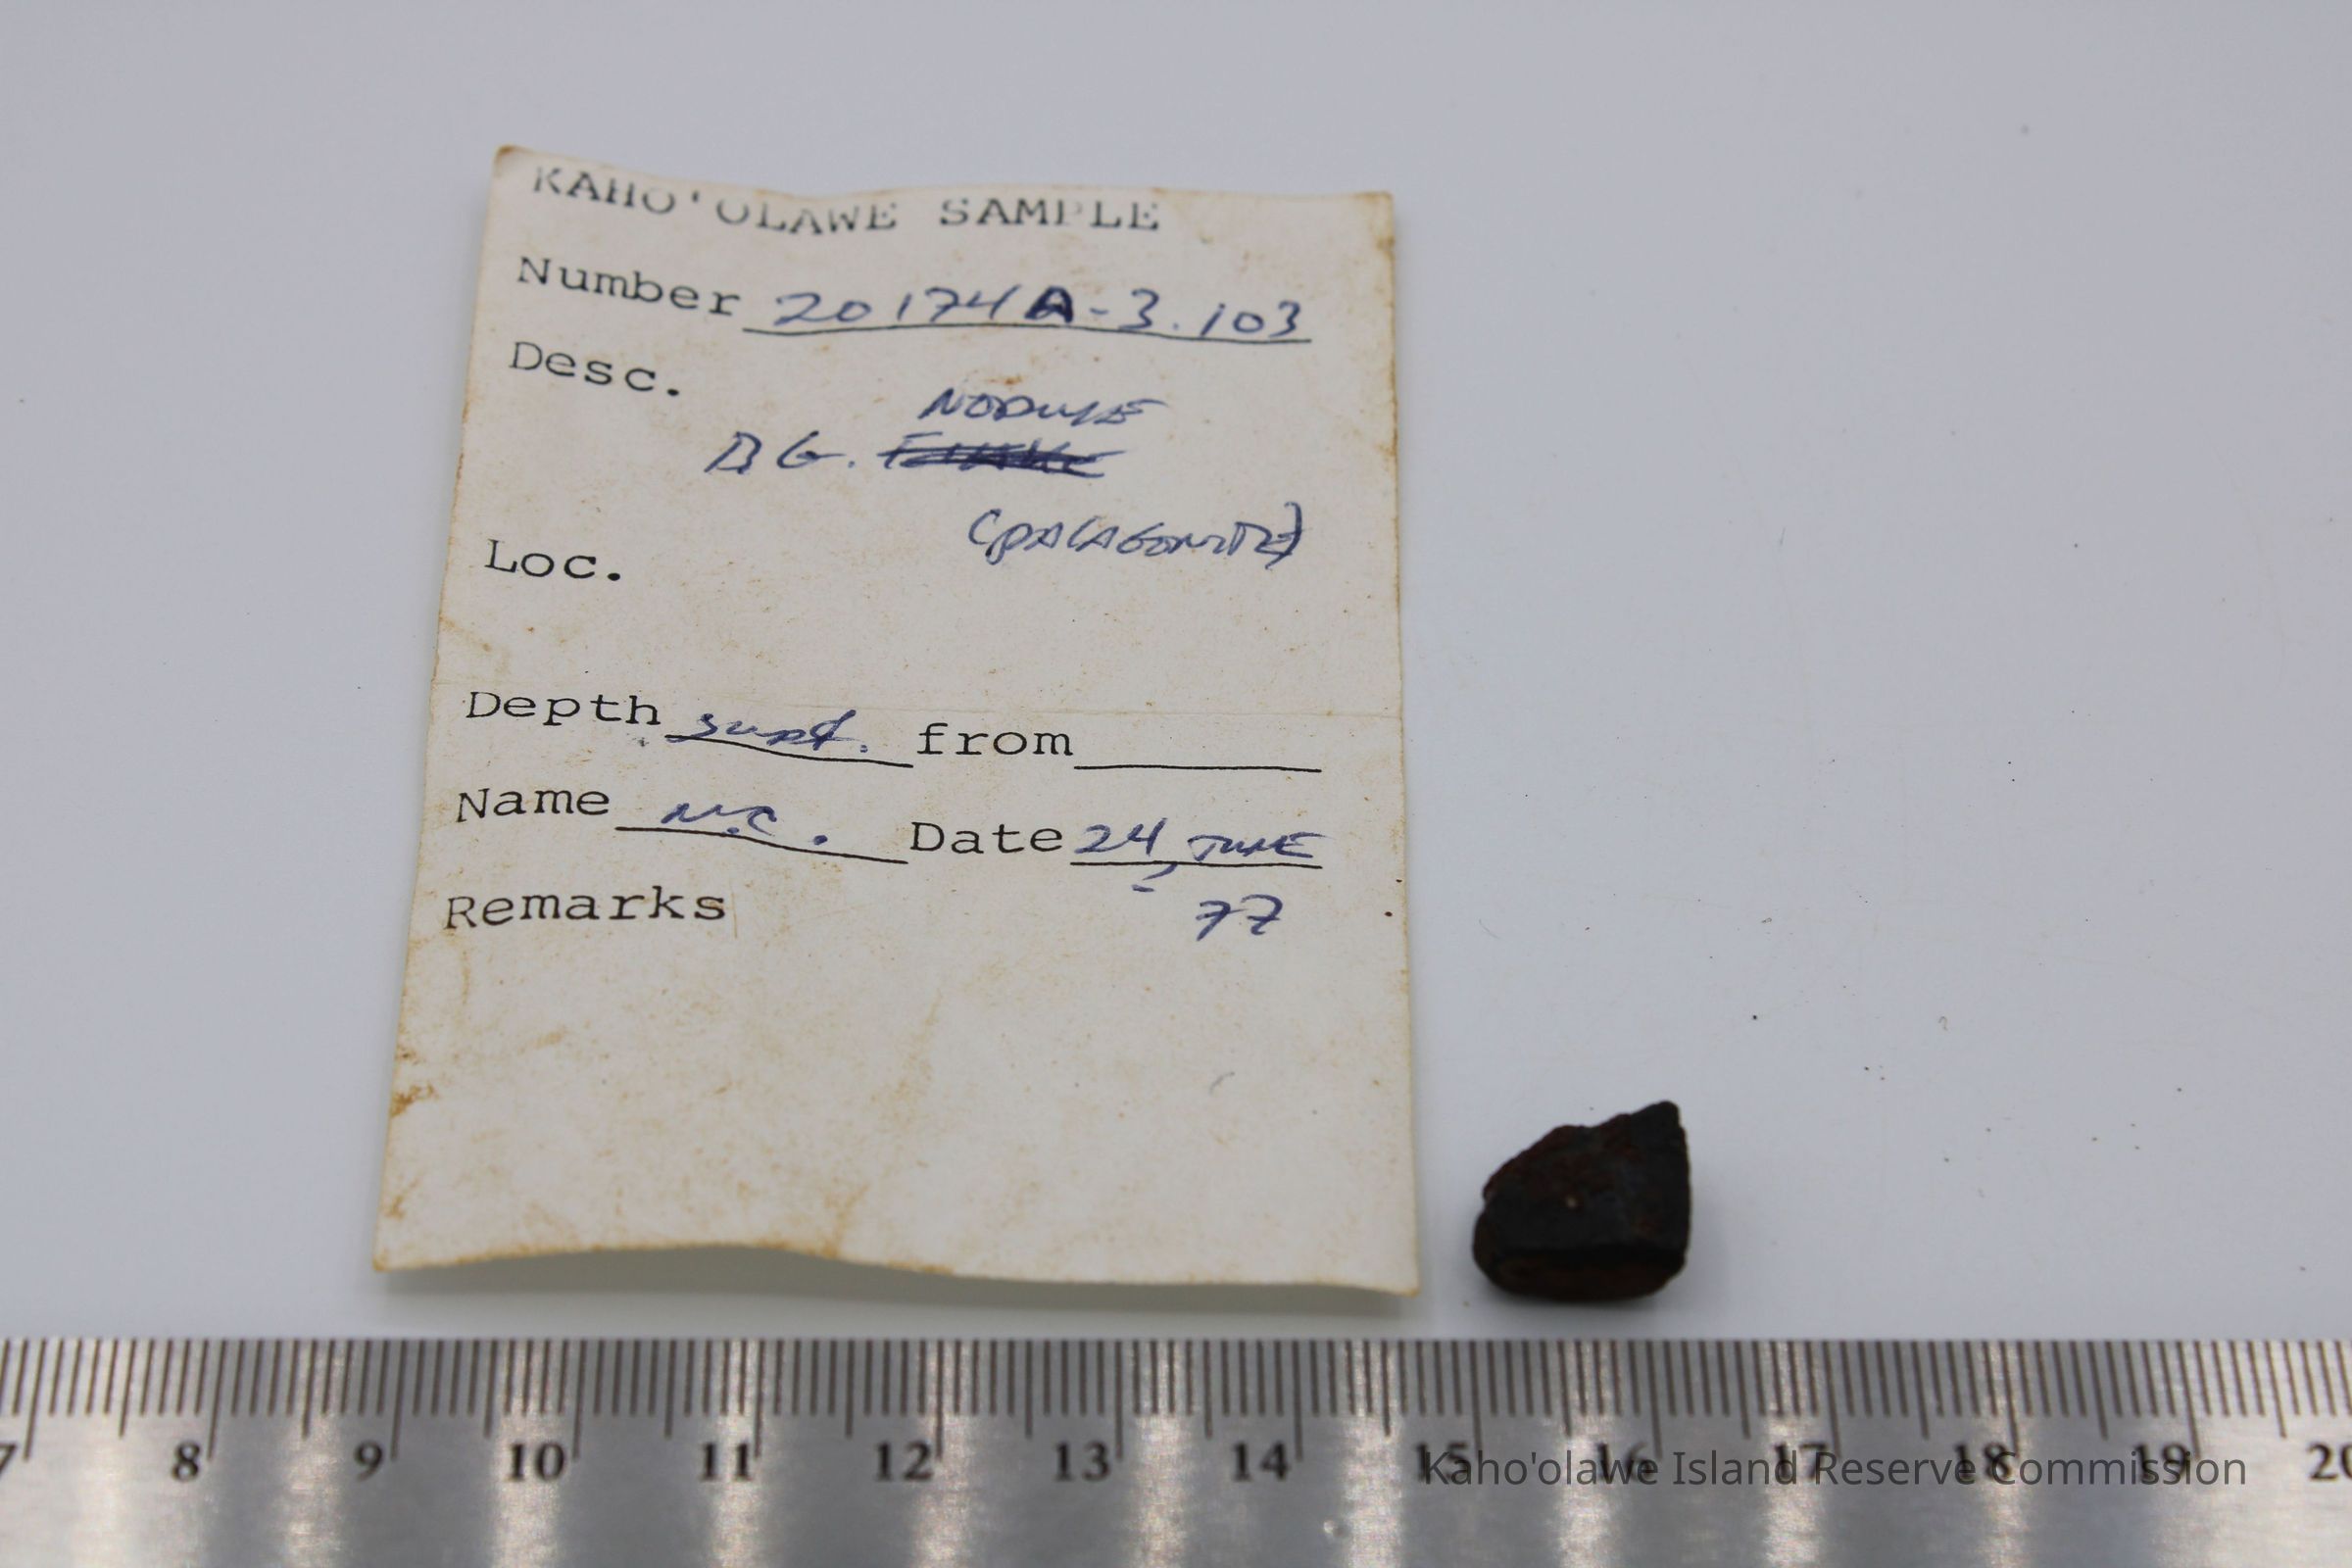 KAHO'OLAWE SAMPLE
Number 20174A-3.103
Desc.
NODULE
B G.
(PALAGONITE)
Loc.
Depth surf. from
Name N.C. Date 24 JUNE
77
Remarks
7 8 9 10 11 12 13 14 15 16 17 18 19 20
Kaho'olawe Island Reserve Commission